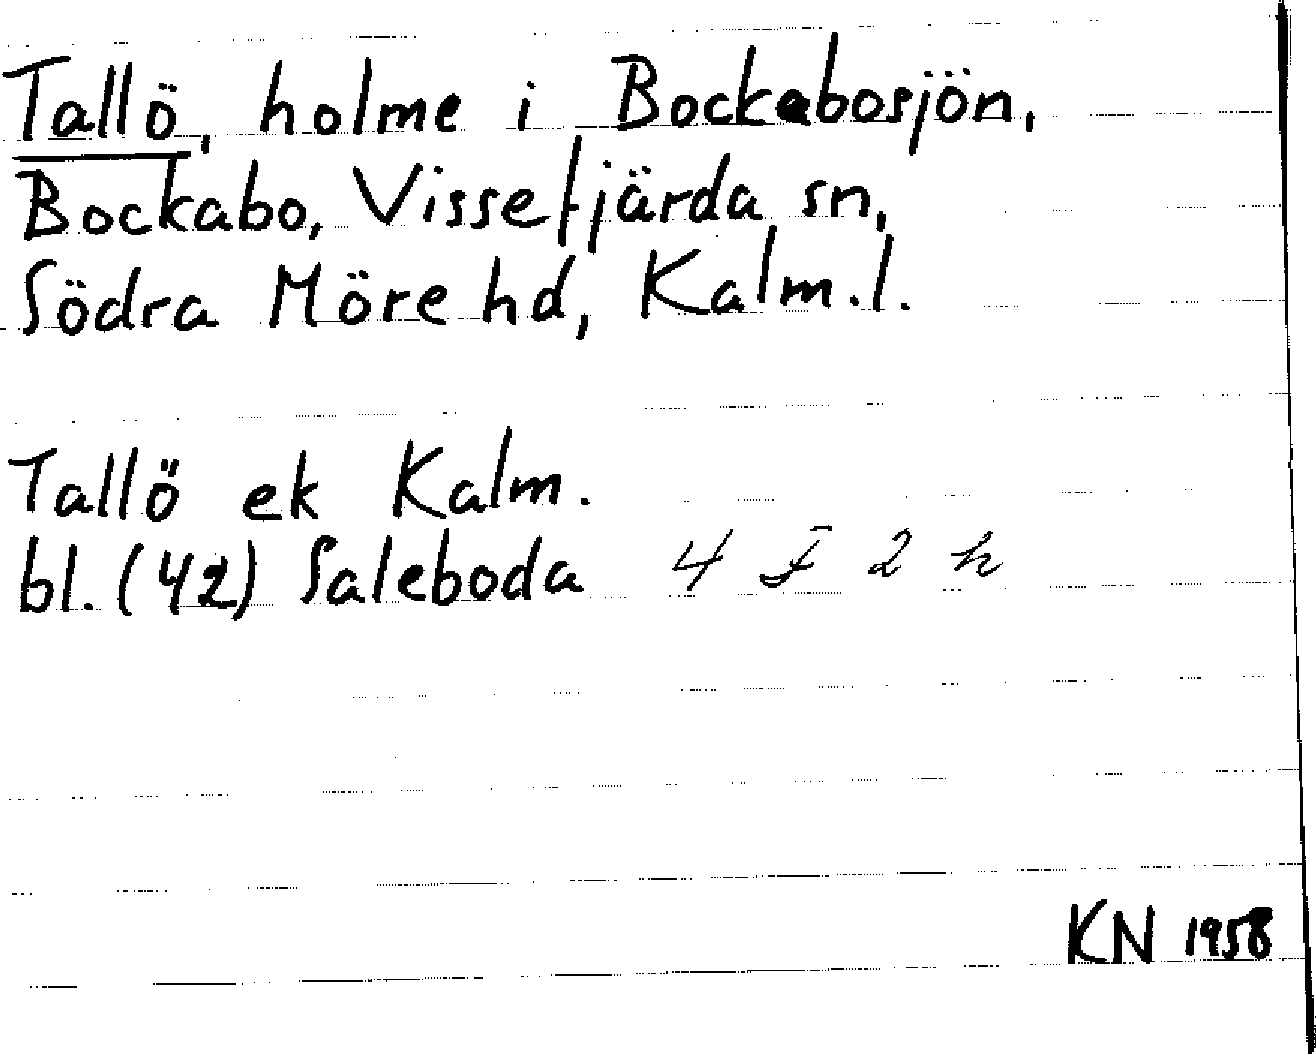 Tallö, holme i Bockabosjön,
Bockabo, Vissefjärda sn,
Södra Möre hd, Kalm.l.
Tallö ek Kalm.
bl. (42) Saleboda 4 F 2 h
KN 1958